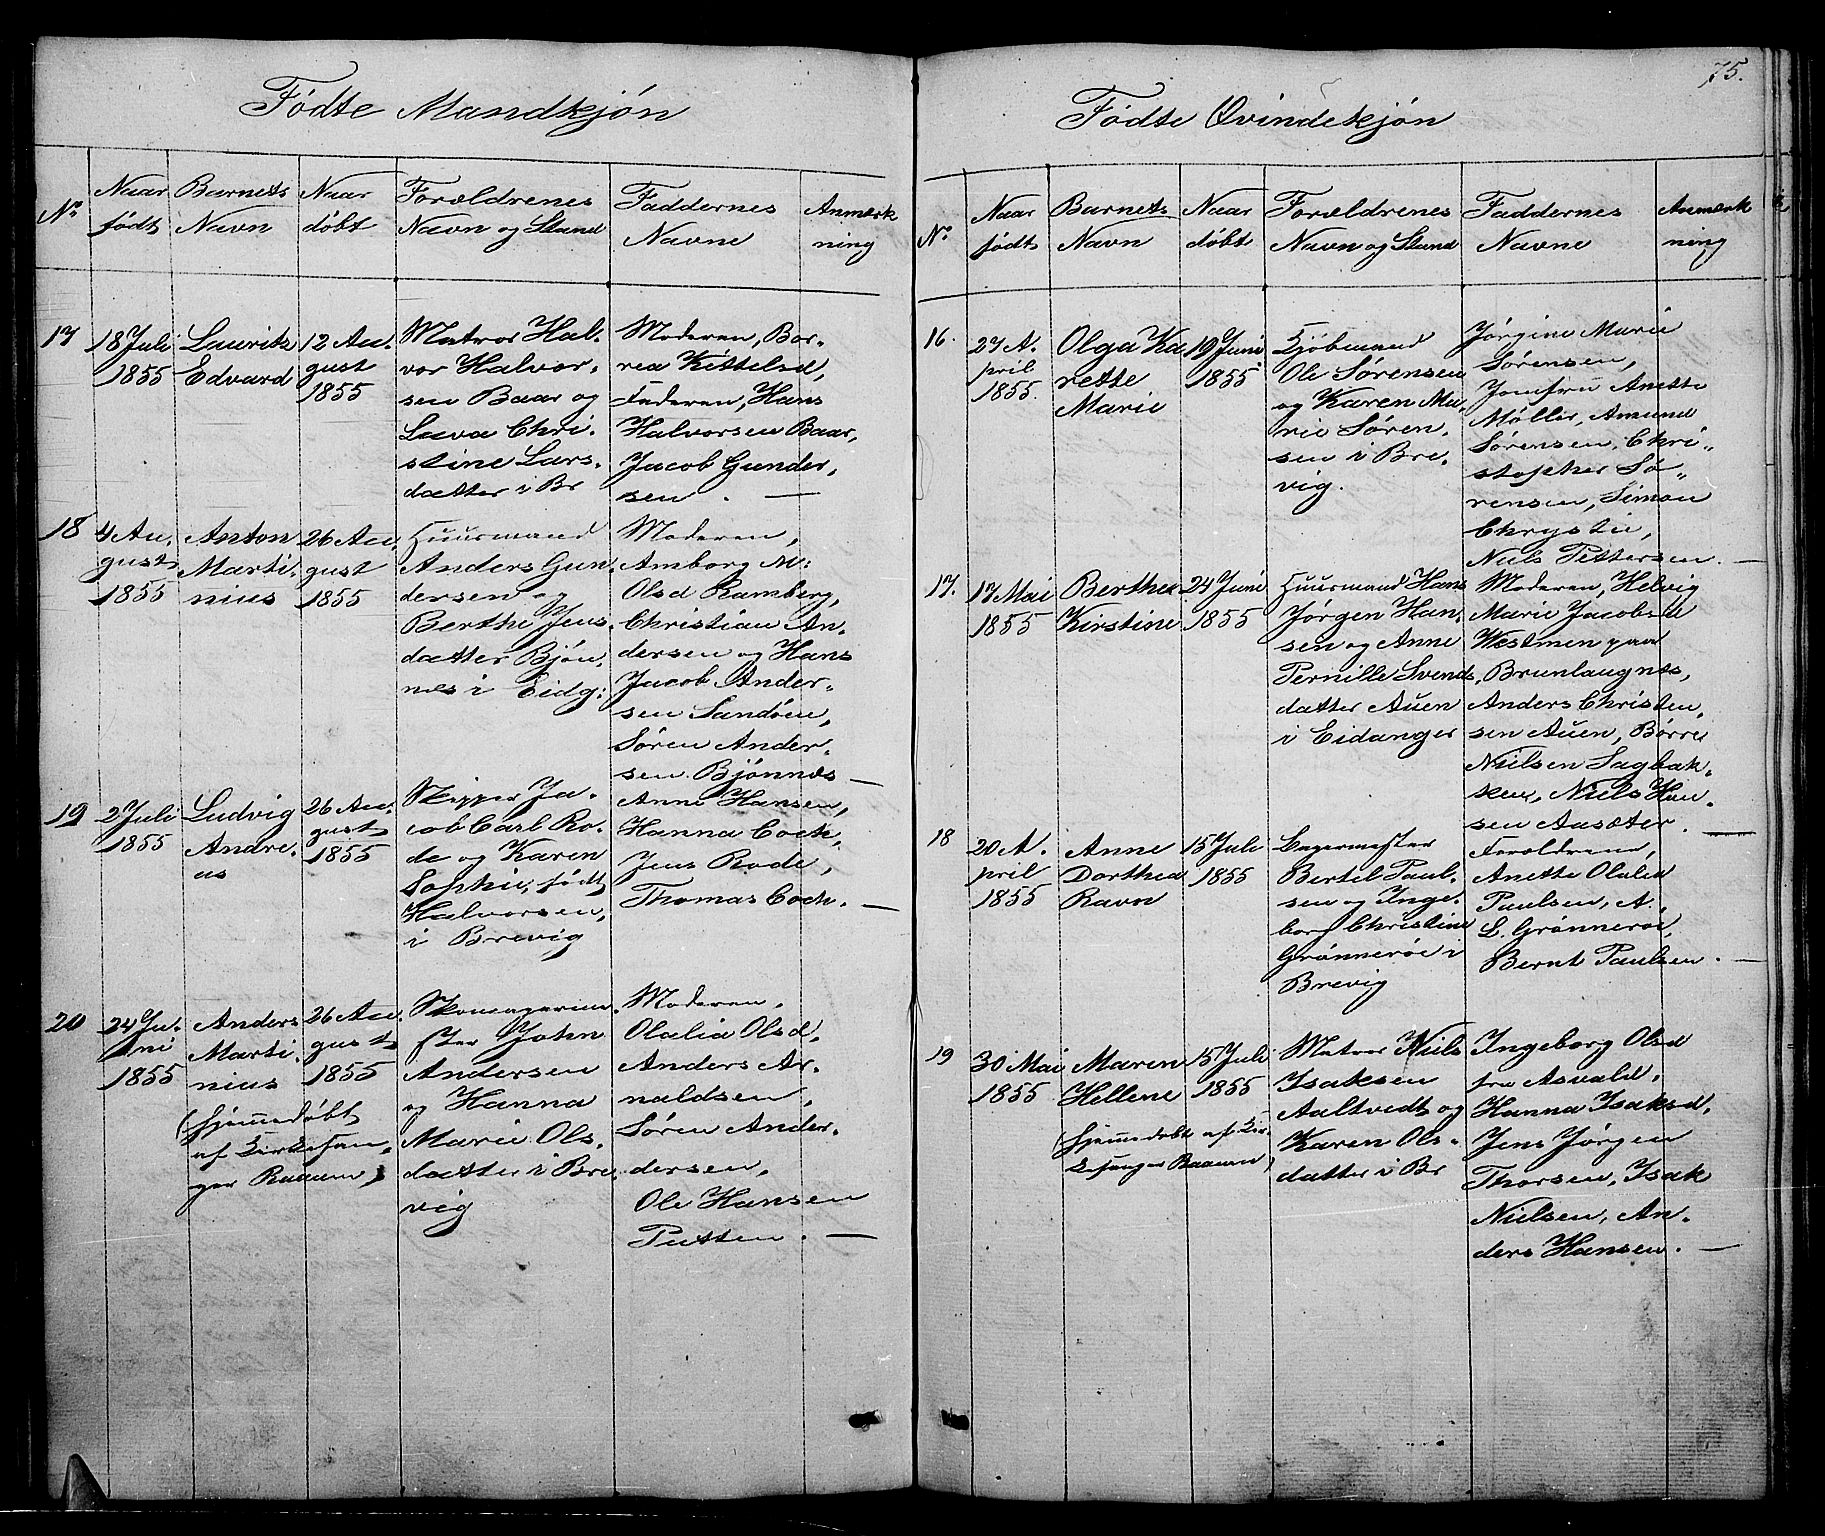 75.
Fødte Mandkjøn
No
Naar født
Barnets Navn
Naar døbt
Forældrenes Navn og Stand
Faddernes Navne
Anmærkning
17
18 Juli
1855
Lauritz
Edvard
12 Au-
gust
1855
Matros Hal-
vor Halvor-
sen Baar og
Lava Chri-
stine Lars-
datter i Br
Moderen, Bor-
rea Kittelsd,
Faderen, Hans
Halvorsen Baar,
Jacob Gunder-
sen. —
18
4 Au-
gust
1855
Anton
Marti-
nius
26 Au-
gust
1855
Huusmand
Anders Gun-
dersen og
Berthe Jens-
datter Bjøn-
nes i Eidg:
Moderen,
Amborg M:
Olsd Ramberg,
Christian An-
dersen og Hans
Jacob Ander-
sen Sandøen,
Søren Ander-
sen Bjønnes —
19
2 Juli
1855
Ludvig
Andre-
as
26 Au-
gust
1855
Skipper Ja-
cob Carl Ro-
de og Karen
Sophie, født
Halvorsen,
i Brevig
Anne Hansen,
Hanna Coch,
Jens Rode,
Thomas Coch. —
20
24 Ju-
ni
1855
Anders
Marti-
nius
(hjemmedøbt
af Kirkesan-
ger Raaum)
26 Au-
gust
1855
Skomagerme-
ster John
Andersen
og Hanna
Marie Ols-
datter i Bre-
vig
Moderen,
Olalia Olsd,
Anders Ar-
naldsen,
Søren Ander-
dersen,
Ole Hansen
Putten. —
Fødte Qvindekjøn
No
Naar født
Barnets Navn
Naar døbt
Forældrenes Navn og Stand
Faddernes Navne
Anmærkning
16.
27 A-
pril
1855.
Olga Ka
rette
Marie
19 Juni
1855
Kjøbmand
Ole Sørensen
og Karen Ma-
rie Søren-
sen i Bre-
vig.
Jørgine Marie
Sørensen,
Jomfru Anette
Møller, Amund
Sørensen, Chri-
stopher Sø-
rensen, Simon
Chrystie,
Niels Pettersen. —
17.
17 Mai
1855
Berthea
Kirstine
24 Juni
1855
Huusmand Hans
Jørgen Han-
sen og Anne
Pernille Svends-
datter Auen
i Eidanger
Moderen, Helvig
Marie Jacobsd
Westmen paa
Brunlaugnes,
Anders Christen-
sen Auen, Børre
Nielsen Sagbak-
ken, Niels Han-
sen Aasæter. —
18
20 A-
pril
1855
Anne
Dorthea
Ravn
15 Juli
1855
Bagermester
Bertel Paul-
sen og Inge-
borg Christine
Grønnerøe i
Brevig
Forældrene,
Anette Olalea
Paulsen, A.
L. Grønnerøe,
Bernt Paulsen. —
19
30 Mai
1855
Maren
Hellene
(hjemmedøbt af Kir-
kesanger Raaum)
15 Juli
1855
Matros Niels
Isaksen
Aaltvedt og
Karen Ols-
datter i Br
Ingeborg Olsd
fra Asvald,
Hanna Isaksd,
Jens Jørgen
Thorsen, Isak
Nielsen, An-
ders Hansen. —